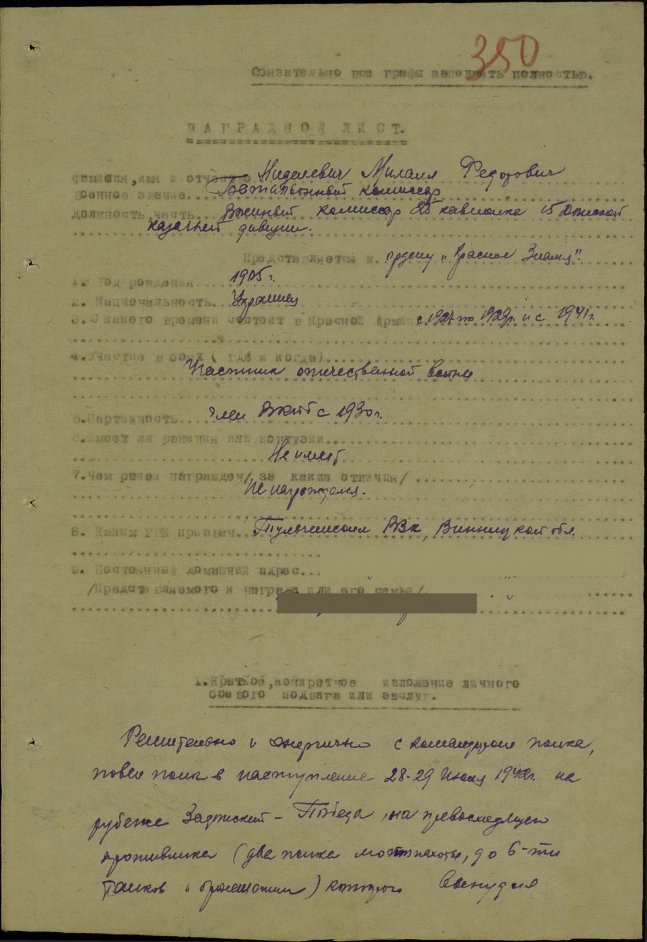 350
Обязательно все графы заполнять полностью.
НАГРАДНОЙ ЛИСТ.
фамилия, имя и отчество Ниделевич Михаил Федорович
военное звание... Батальонный комиссар
должность, часть... Военный комиссар 25 кавполка 15 Донской
казачьей дивизии.
Представляется к ордену "Красное Знамя".
1. Год рождения 1905 г.
2. Национальность Украинец
3. С какого времени состоит в Красной Армии с 1927 по 1929 г. и с 1941 г.
4. Участие в боях (где и когда)
Участник отечественной войны
5. Партийность член ВКПб с 1930 г.
6. Имеет ли ранения или контузии...
Не имеет
7. Чем ранее награжден/ за какие отличия/
Не награждался.
8. Каким РВК призван... РВК, Винницкой обл.
9. Постоянный домашний адрес...
/Представляемого к награде или его семьи/
1. Краткое, конкретное изложение личного
боевого подвига или заслуг.
Решительно и энергично с командиром полка,
повел полк в наступление 28-29 июля 1942 г. на
рубеже Задонский - Победа, на превосходящего
противника (два полка мотопехоты, до 6-ти
танков и ) которого вынудил